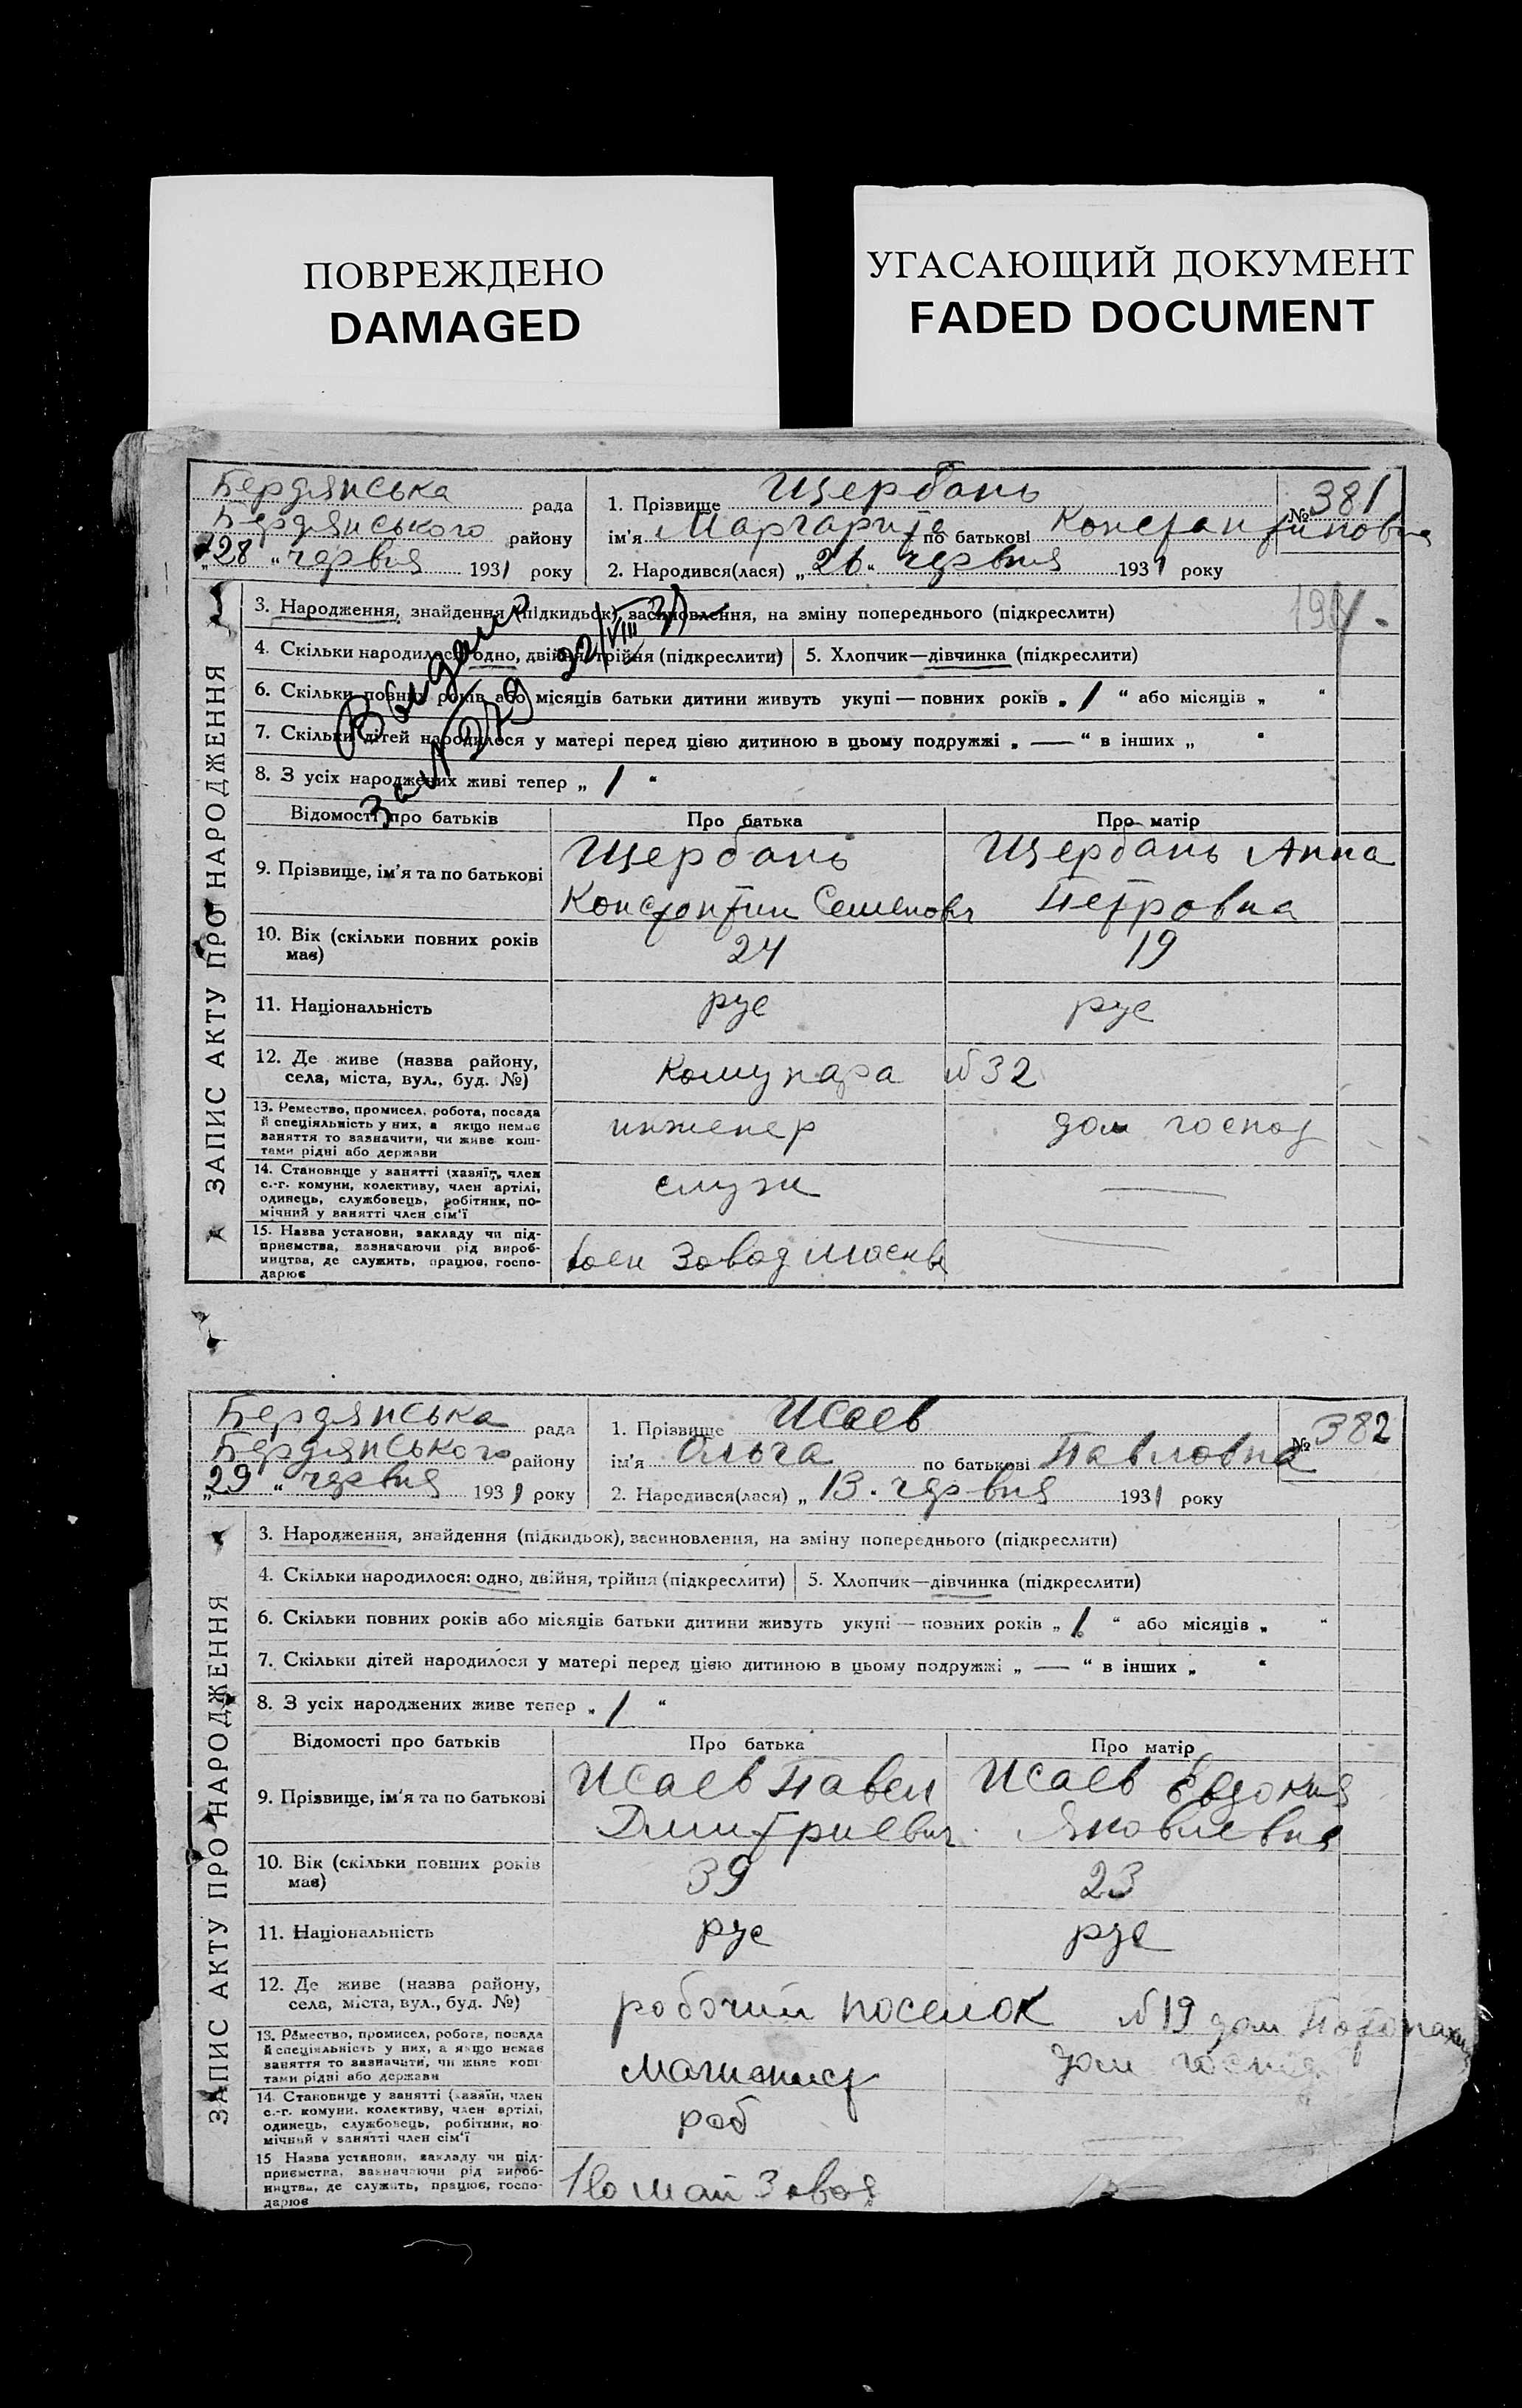 ПОВРЕЖДЕНО
DAMAGED
УГАСАЮЩИЙ ДОКУМЕНТ
FADED DOCUMENT
ЗАПИС АКТУ ПРО НАРОДЖЕННЯ
Бердянська рада
Бердянського району
„28“ червня 1931 року
1. Прізвище Щербань
№ 381
ім'я Маргарита по батькові Константиновна
2. Народився(лася) „26“ червня 1931 року
3. Народження, знайдення (підкидьок), засиновлення, на зміну попереднього (підкреслити)
193
4. Скільки народилося: одно, двійня, трійня (підкреслити) 5. Хлопчик—дівчинка (підкреслити)
6. Скільки повних років або місяців батьки дитини живуть укупі — повних років „1“ або місяців „ “
7. Скільки дітей народилося у матері перед цією дитиною в цьому подружжі „—“ в інших „ “
8. З усіх народжених живі тепер „1“
Видано
22/VIII 31
Відомості про батьків Про батька Про матір
9. Прізвище, ім'я та по батькові
Щербань Константин Семенович
Щербань Анна Петровна
10. Вік (скільки повних років має) 24 19
11. Національність рус рус
12. Де живе (назва району, села, міста, вул., буд. №) Комунара №32
13. Ремество, промисел, робота, посада й спеціяльність у них, а якщо немає заняття то зазначити, чи живе коштами рідні або держави
инженер дом господ
14. Становище у занятті (хазяїн, член с.-г. комуни, колективу, член артілі, одинець, службовець, робітник, помічний у занятті член сім'ї
служ —
15. Назва установи, закладу чи підприємства, зазначаючи рід виробництва, де служить, працює, господарює
Завод Москва —
ЗАПИС АКТУ ПРО НАРОДЖЕННЯ
Бердянська рада
Бердянського району
„29“ червня 1931 року
1. Прізвище Исаев
№ 382
ім'я Ольга по батькові Павловна
2. Народився(лася) „13. червня 1931 року
3. Народження, знайдення (підкидьок), засиновлення, на зміну попереднього (підкреслити)
4. Скільки народилося: одно, двійня, трійня (підкреслити) 5. Хлопчик—дівчинка (підкреслити)
6. Скільки повних років або місяців батьки дитини живуть укупі — повних років „1“ або місяців „ “
7. Скільки дітей народилося у матері перед цією дитиною в цьому подружжі „—“ в інших „ “
8. З усіх народжених живе тепер „1“
Відомості про батьків Про батька Про матір
9. Прізвище, ім'я та по батькові
Исаев Павел Дмитриевич
Исаев Евдокия Яковлевна
10. Вік (скільки повних років має) 39 23
11. Національність рус рус
12. Де живе (назва району, села, міста, вул., буд. №) робочий поселок №19 дом
13. Ремество, промисел, робота, посада й спеціяльність у них, а якщо немає заняття то зазначити, чи живе коштами рідні або держави
машинист дом господ
14. Становище у занятті (хазяїн, член с.-г. комуни, колективу, член артілі, одинець, службовець, робітник, помічний у занятті член сім'ї
роб —
15 Назва установи, закладу чи підприємства, зазначаючи рід виробництва, де служить, працює, господарює
1го май Завод